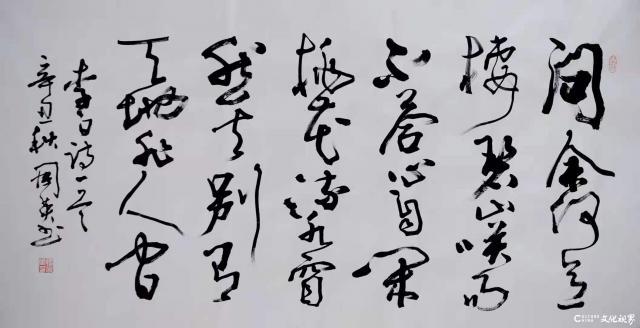 问余何意
棲碧山咲而
不答心自闲
桃花流水窅
然去别有
天地非人间
李白诗一首
辛丑秋周英书
CULTURE CHINA 文化视界